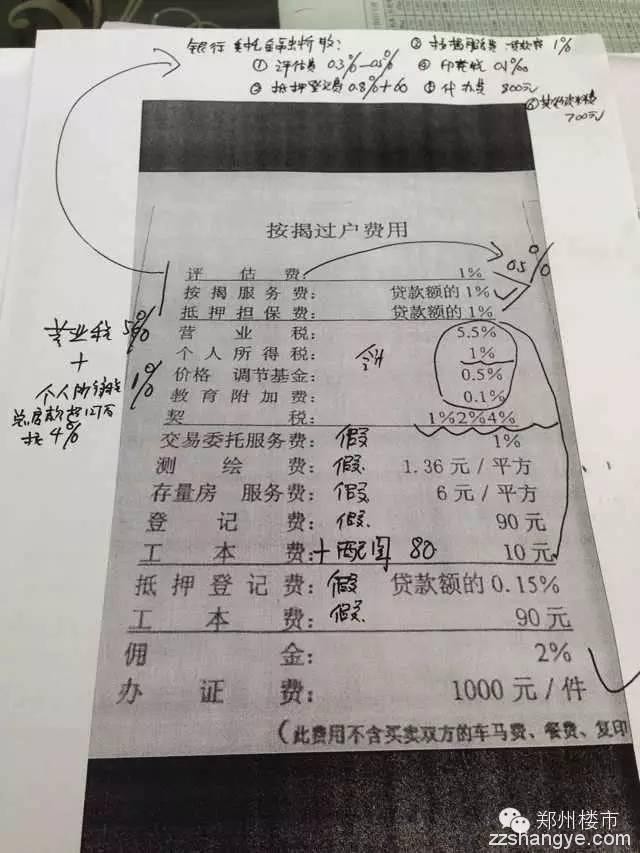 ① 评估费 0.3%-0.5%
③ 按揭服务费 贷款额 1%
④ 印花税 0.1‰
② 抵押登记费 0.8‰+60
⑤ 代办费 800元
700元
按揭过户费用
评估费: 1%
0.5%
按揭服务费: 贷款额的1%
抵押担保费: 贷款额的1%
营业税: 5.5%
个人所得税: 1%
价格 调节基金: 0.5%
教育附加费: 0.1%
契税: 1%2%4%
交易委托服务费: 假 1%
测绘费: 假 1.36元/平方
存量房 服务费: 假 6元/平方
登记费: 假 90元
工本费: +配图 80 10元
抵押登记费: 假 贷款额的0.15%
工本费: 假 90元
佣金: 2%
办证费: 1000元/件
(此费用不含买卖双方的车马费、餐费、复印
营业税 5%
+
个人所得税 1%
郑州楼市
zzshangye.com